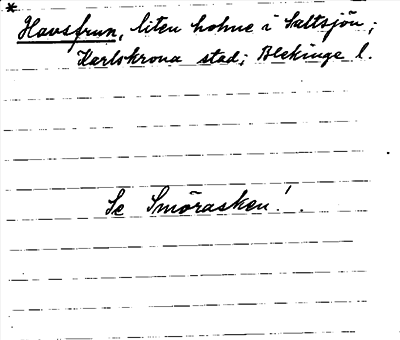 * Havsfrun, liten holme i Saltsjön;
Karlskrona stad; Blekinge l.
Se Smörasken!